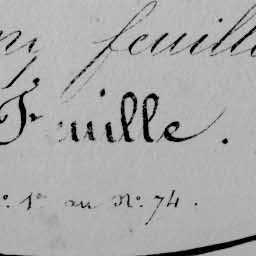 feuille
Feuille.
N.º 1.er au Nº. 74.